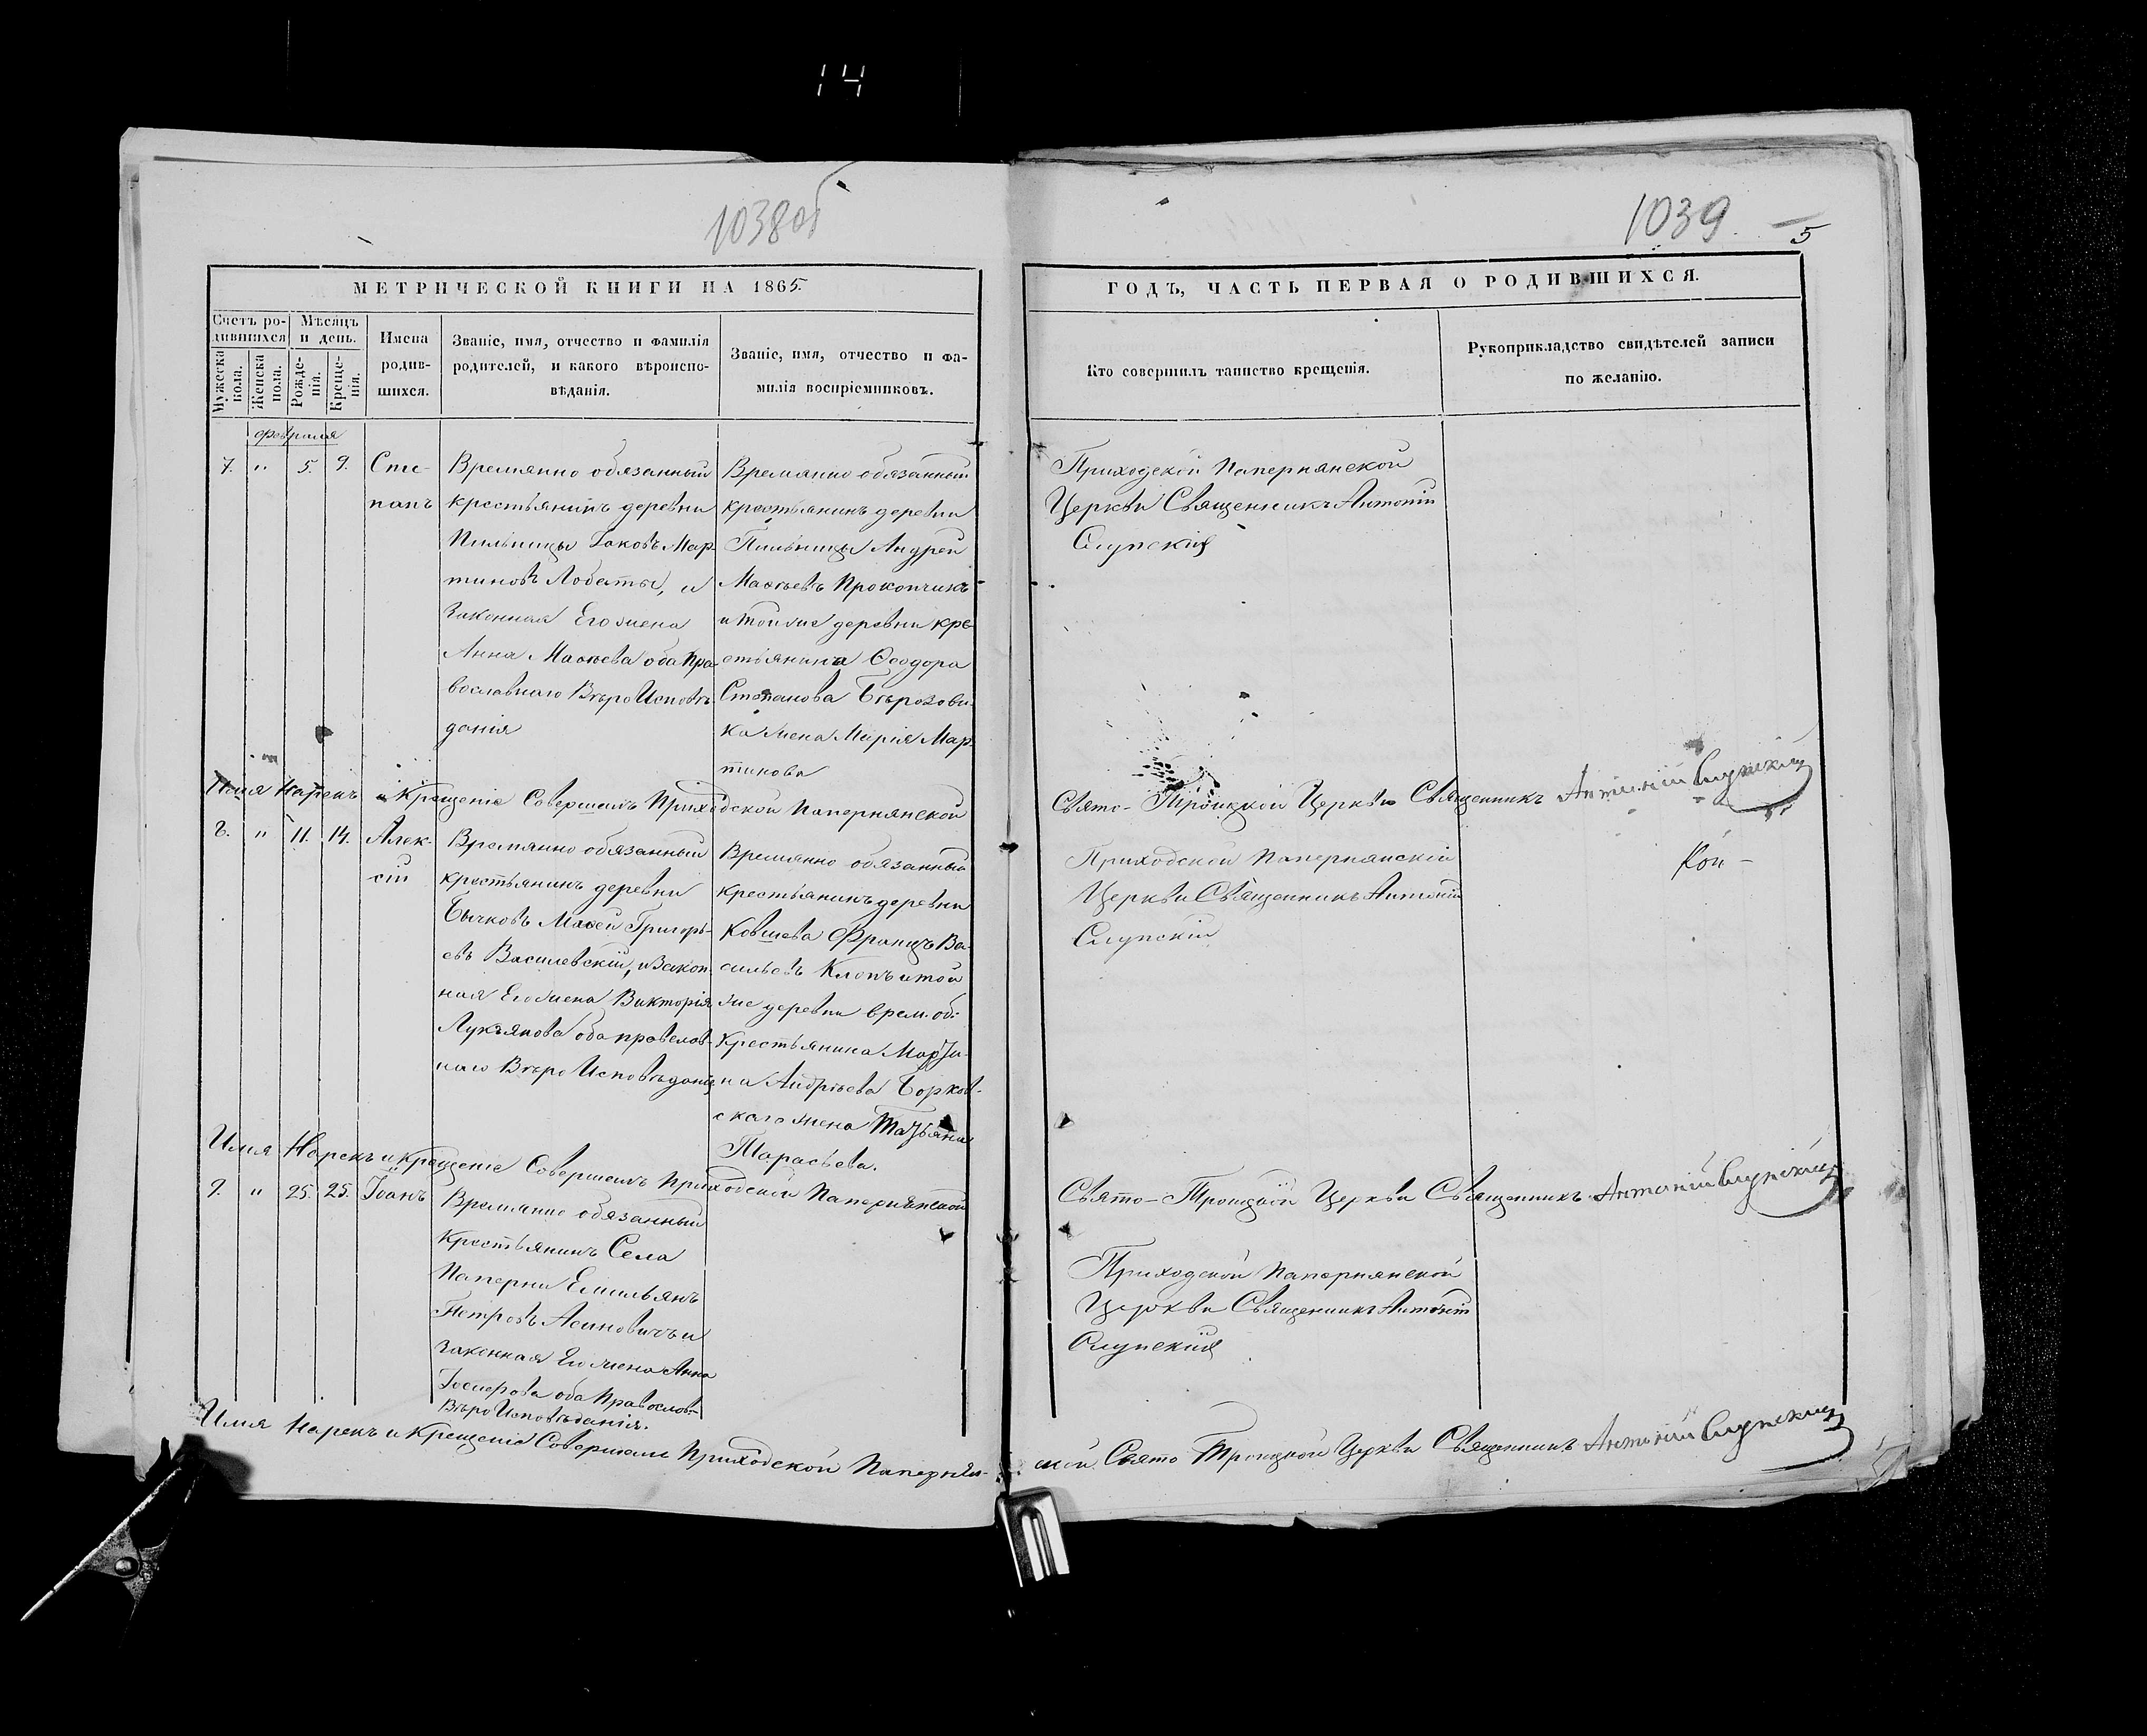 14
1038об
1039.
5
МЕТРИЧЕСКОЙ КНИГИ НА 1865.
ГОДЪ, ЧАСТЬ ПЕРВАЯ О РОДИВШИХСЯ.
Счетъ ро-
дившихся
Мужеска
пола.
Женска
пола.
Мѣсяцъ
и день.
Рожде-
нія.
Креще-
нія.
Имена
родив-
шихся.
Званіе, имя, отчество и фамилія
родителей, и какого вѣроиспо-
вѣданія.
Званіе, имя, отчество и фа-
милія воспріемниковъ.
Кто совершилъ таинство крещенія.
Рукоприкладство свидѣтелей записи
по желанію.
Февраля
7. " 5. 9.
Сте-
панъ
Времянно обязанный
крестьянинъ деревни
Пильницы Іаковъ Мар
тиновъ Лобаты, и
Законная Его жена
Анна Маѳѣева оба Пра
вославнаго Вѣро Исповѣ
данія
Времянно обязанный
крестьянинъ деревни
Пильницы Андрей
Маѳѣевъ Прокопчикъ
и той же деревни кре
стьянина Ѳеодора
Степанова Бѣрозови
ка жена Марія Мар
тинова
Приходской Папернянской
Церкви Священникъ Антоній
Слупскій
Имя Нарекъ и Крещеніе Совершилъ Приходской Папернянской
Свято-Троицкой Церкви Священникъ Антоній Слупскій
8. " 11. 14.
Алек-
сій
Времянно обязанный
крестьянинъ деревни
Бычковъ Моѵсей Григорь-
евъ Василевскій, и Закон
ная Его жена Викторія
Лукъянова оба православ-
наго Вѣро Исповѣданія
Времянно обязанный
крестьянинъ деревни
Ковшева Францъ Ва-
сильевъ Клопъ и той
же деревни врем. об:
Крестьянина Марти-
на Андрѣева Борков-
скаго жена Татьяна
Тарасьева.
Приходской Папернянскій
Церкви Священникъ Антоній
Слупскій
Кон-
Имя Нарекъ и Крещеніе Совершилъ Приходской Папернянской
Свято-Троицкой Церкви Священникъ Антоній Слупскій
9. " 25. 25.
Іоанъ
Времянно обязанный
Крестьянинъ Села
Паперни Емильянъ
Петровъ Асиновичъ и
законная Его жена Анна
Іосиерова оба Православ-
Вѣро Исповѣданія.
Приходской Папернянской
Церкви Священникъ Антоній
Слупскій
Имя Нарекъ и Крещеніе Совершилъ Приходской Папернян-
ской Свято Троицкой Церкви Священникъ Антоній Слупскій